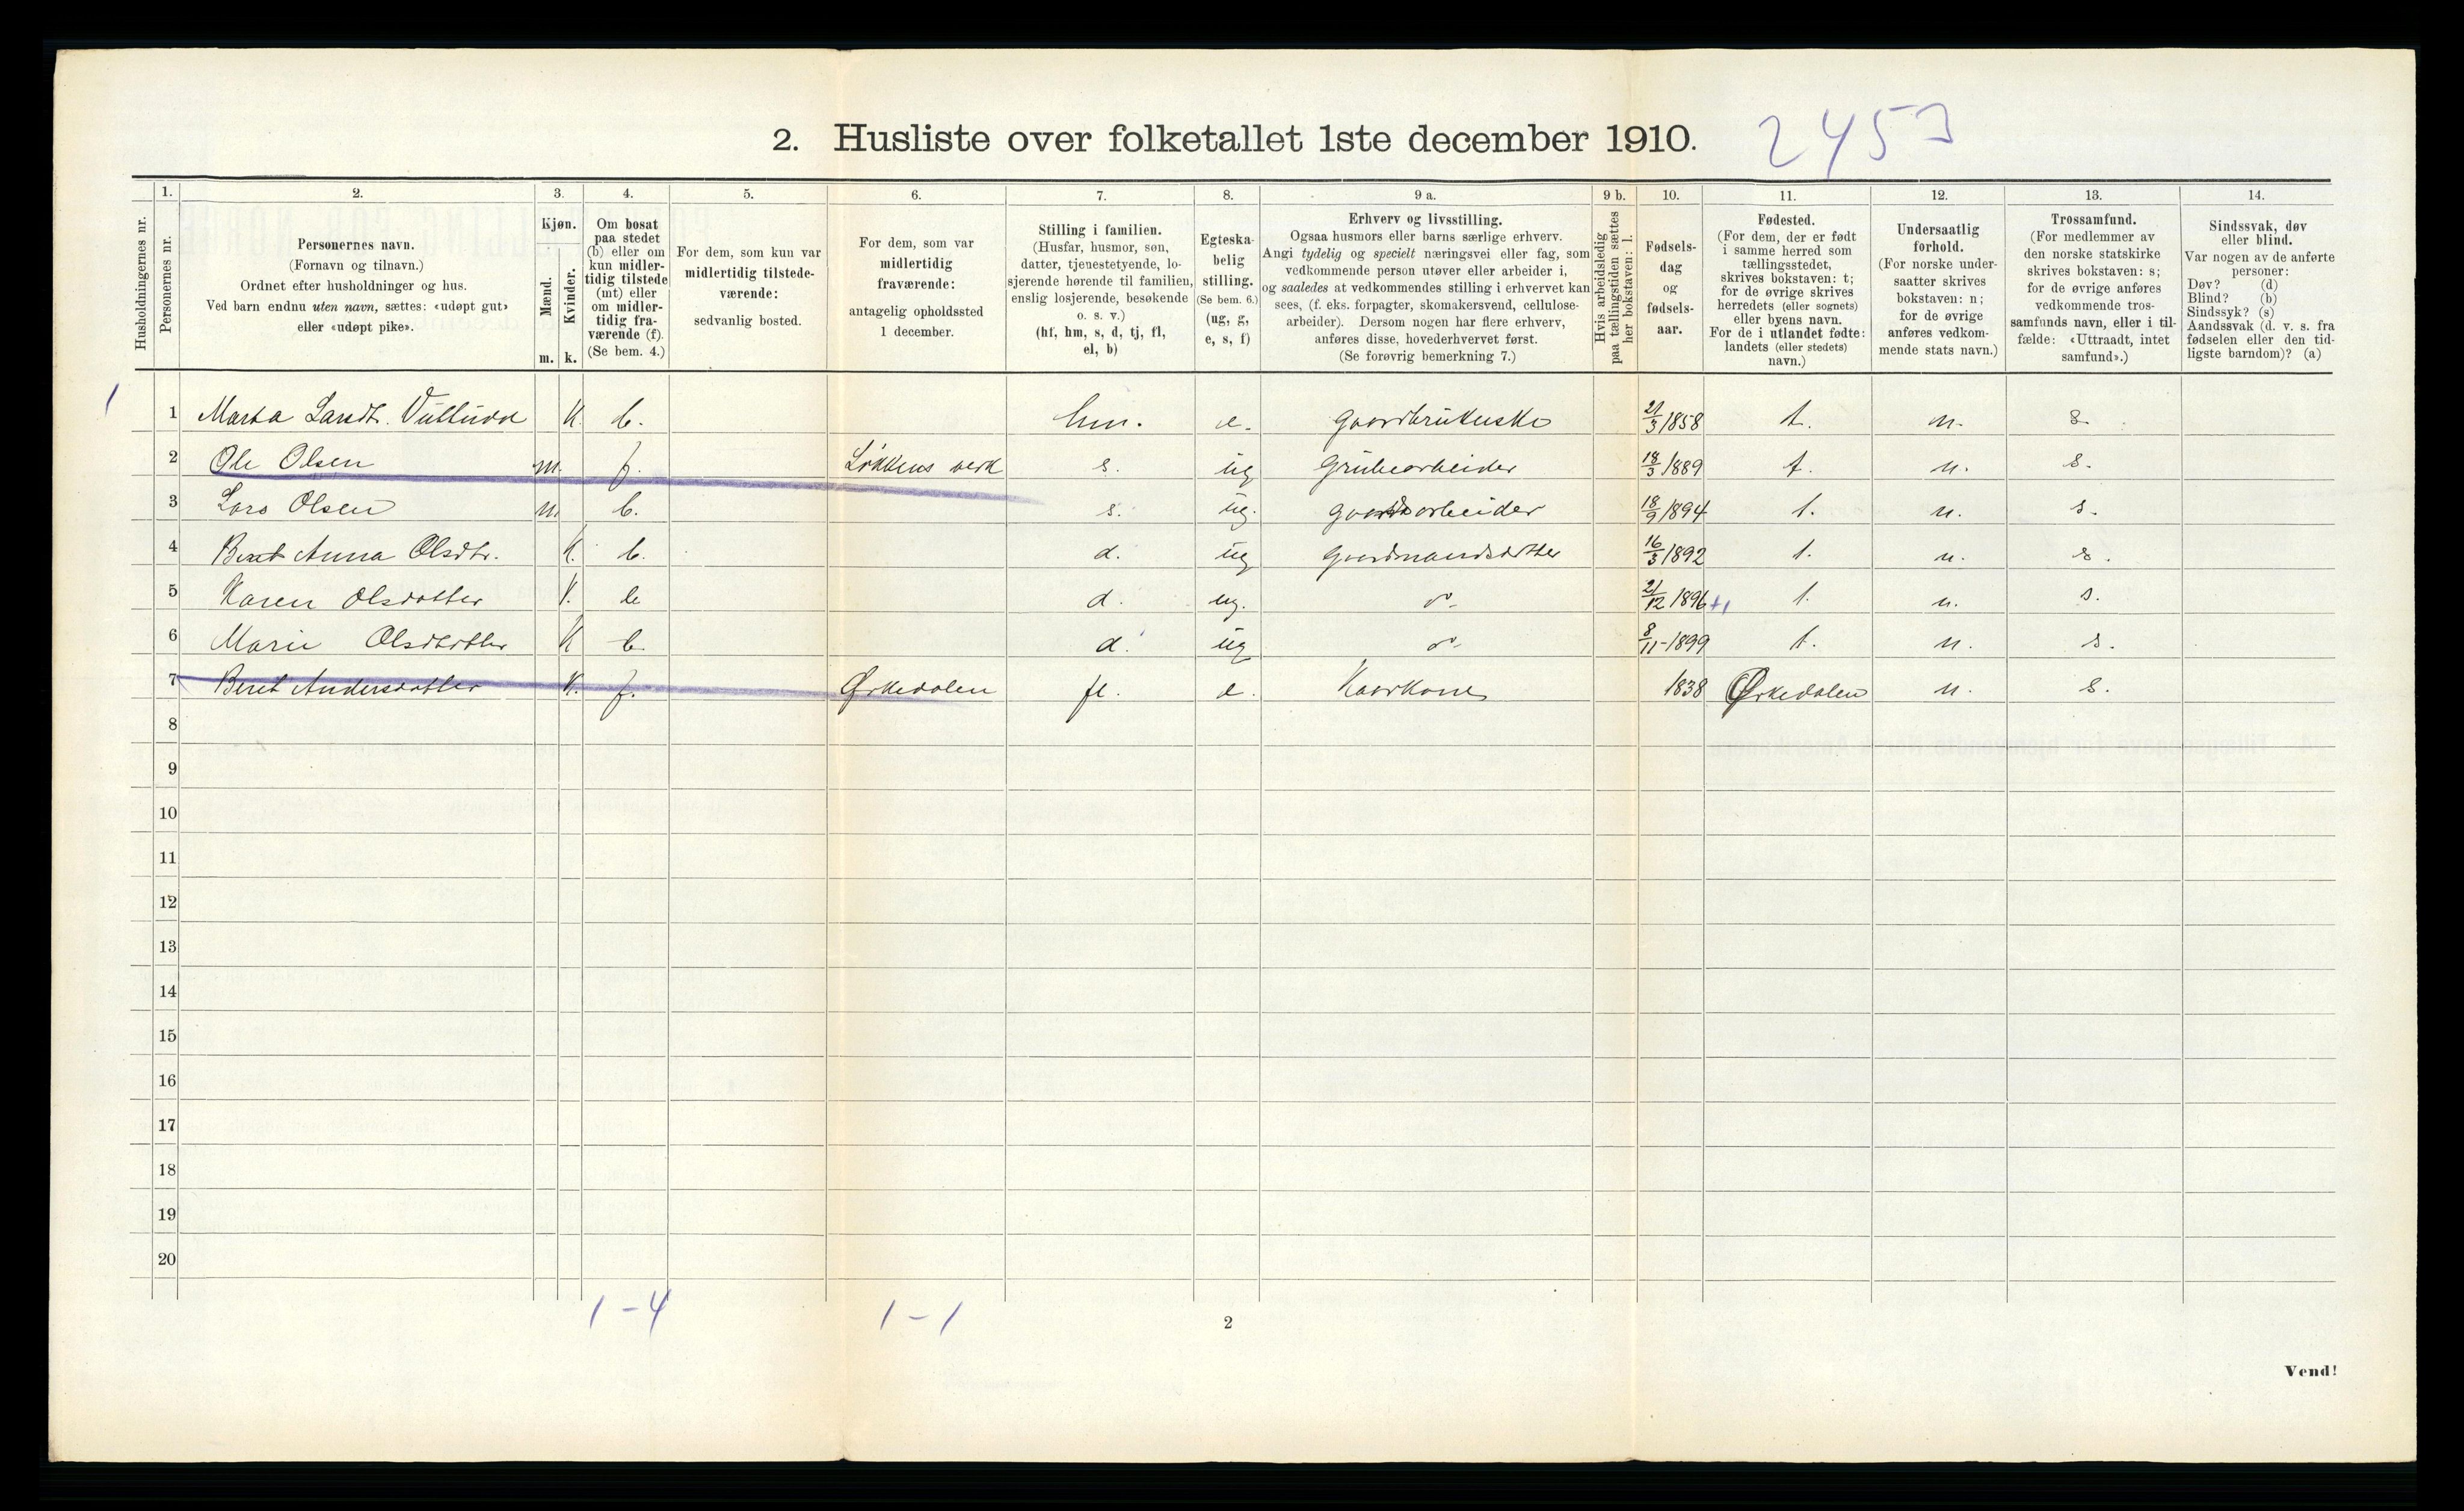 2. Husliste over folketallet 1ste december 1910. 2453
1. 2. 3. 4. 5. 6. 7. 8. 9 a. 9 b. 10. 11. 12. 13. 14.
Husholdningernes nr.
Personernes nr.
Personernes navn.
(Fornavn og tilnavn.)
Ordnet efter husholdninger og hus.
Ved barn endnu uten navn, sættes: «udøpt gut»
eller «udøpt pike».
Kjøn.
Mænd.
Kvinder.
m. k.
Om bosat
paa stedet
(b) eller om
kun midler-
tidig tilstede
(mt) eller
om midler-
tidig fra-
værende (f).
(Se bem. 4.)
For dem, som kun var
midlertidig tilstede-
værende:
sedvanlig bosted.
For dem, som var
midlertidig
fraværende:
antagelig opholdssted
1 december.
Stilling i familien.
(Husfar, husmor, søn,
datter, tjenestetyende, lo-
sjerende hørende til familien,
enslig losjerende, besøkende
o. s. v.)
(hf, hm, s, d, tj, fl,
el, b)
Egteska-
belig
stilling.
(Se bem. 6.)
(ug, g,
e, s, f)
Erhverv og livsstilling.
Ogsaa husmors eller barns særlige erhverv.
Angi tydelig og specielt næringsvei eller fag, som
vedkommende person utøver eller arbeider i,
og saaledes at vedkommendes stilling i erhvervet kan
sees, (f. eks. forpagter, skomakersvend, cellulose-
arbeider). Dersom nogen har flere erhverv,
anføres disse, hovederhvervet først.
(Se forøvrig bemerkning 7.)
Hvis arbeidsledig
paa tællingstiden sættes
her bokstaven: l.
Fødsels-
dag
og
fødsels-
aar.
Fødested.
(For dem, der er født
i samme herred som
tællingsstedet,
skrives bokstaven: t;
for de øvrige skrives
herredets (eller sognets)
eller byens navn.
For de i utlandet fødte:
landets (eller stedets)
navn.)
Undersaatlig
forhold.
(For norske under-
saatter skrives
bokstaven: n;
for de øvrige
anføres vedkom-
mende stats navn.)
Trossamfund.
(For medlemmer av
den norske statskirke
skrives bokstaven: s;
for de øvrige anføres
vedkommende tros-
samfunds navn, eller i til-
fælde: «Uttraadt, intet
samfund».)
Sindssvak, døv
eller blind.
Var nogen av de anførte
personer:
Døv? (d)
Blind? (b)
Sindssyk? (s)
Aandssvak (d. v. s. fra
fødselen eller den tid-
ligste barndom)? (a)
1 1 Marta Larsdt. K. b. hm. e. gaardbrukerske 21/3 1858 t. n. s.
2 Ole Olsen m. f. Løkkens verk s. ug Grubearbeider 18/3 1889 t. n. s.
3 Lars Olsen m. b. s. ug. gaardsarbeider 18/9 1894 t. n. s.
4 Beret Anna Olsdtr. K. b. d. ug gaardmandsdatter 16/3 1892 t. n. s.
5 Karen Olsdatter K. b d. ug. do 21/12 1896 +1 t. n. s.
6 Marie Olsdatter K b. d. ug do 8/11-1899 t. n. s.
7 Beret Andersdatter K. f. Ørkedalen fl. e. Kaarkone 1838 Ørkedalen n. s.
8
9
10
11
12
13
14
15
16
17
18
19
20
1-4 1-1
2
Vend!